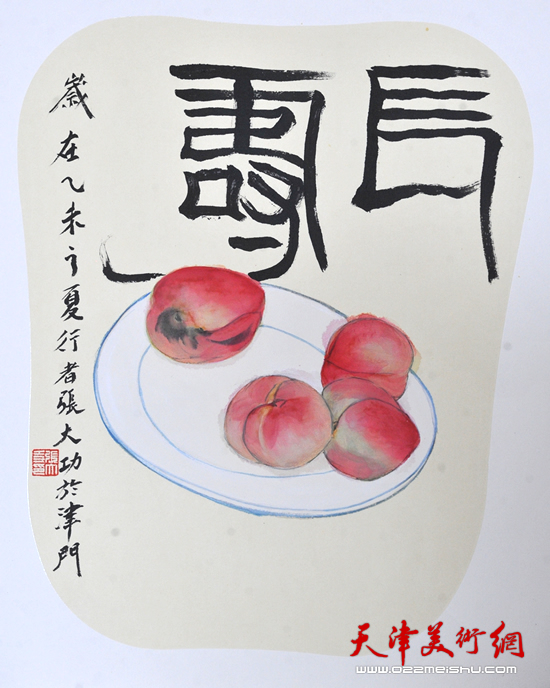 長壽
歲在乙未之夏行者張大功於津門
天津美術網
www.022meishu.com